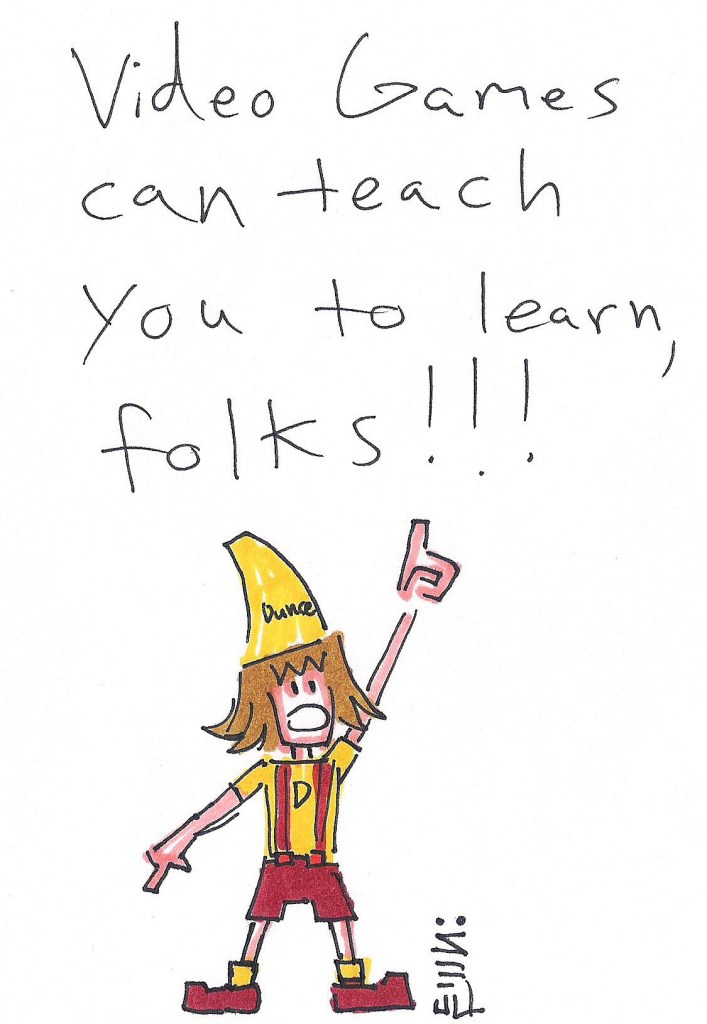 Video Games
can teach
you to learn,
folks!!!
Dunce
D